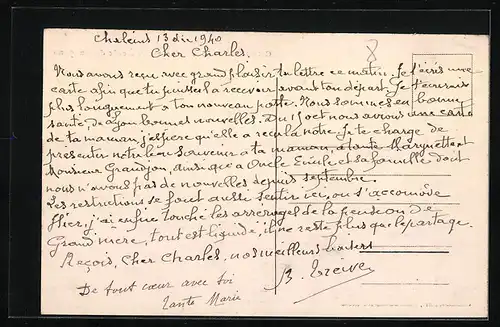 Chaleins 13 déc 1940
Cher Charles.
Nous avons reçu avec grand plaisir ta lettre ce matin. Je t'écris une
carte afin que tu puisses la recevoir avant ton départ. Je t'écrirai
plus longuement à ton nouveau poste. Nous sommes en bonne
santé, de bonnes nouvelles. Du 15 oct nous avons une carte
de ta maman, j'espère qu'elle a reçu la nôtre. Je te charge de
présenter notre bon souvenir à ta maman, à tante Marguerite et
Monsieur Grandjon, ainsi que à Oncle Emile et sa famille dont
nous n'avons pas de nouvelles depuis septembre.
Les restrictions se font aussi sentir ici, on s'accomode
Hier, j'ai enfin touché les arrérages de la pension de
Grand mère, tout est liquidé, il ne reste plus que le partage.
Reçois, Cher Charles, nos meilleurs baisers
De tout cœur avec toi
Tante Marie